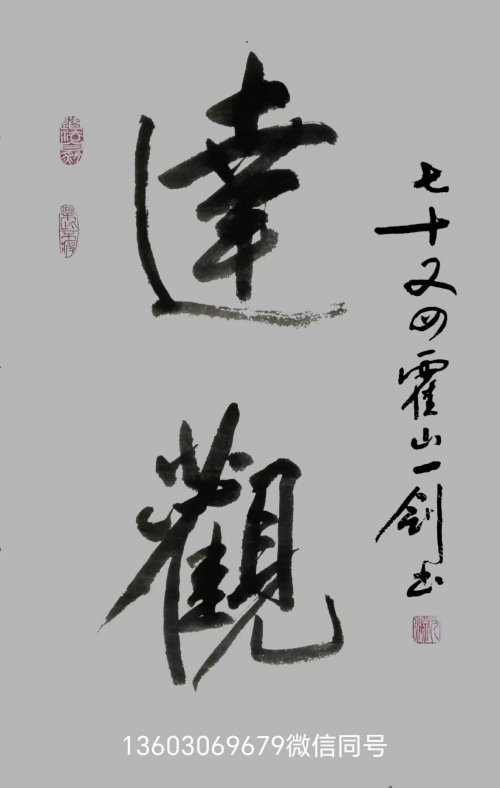 達觀
七十又四霍山一劍书
13603069679微信同号